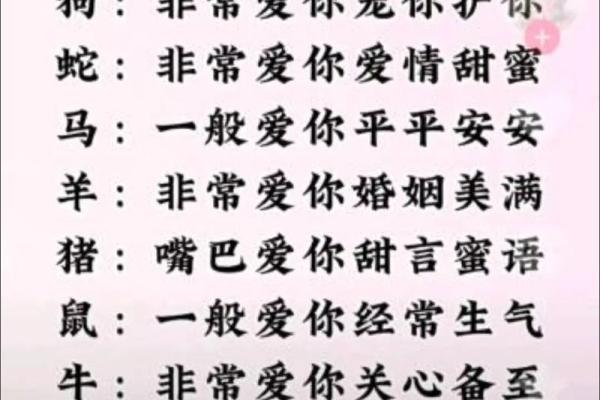 狗：非常爱你宠你护你
蛇：非常爱你爱情甜蜜
马：一般爱你平平安安
羊：非常爱你婚姻美满
猪：嘴巴爱你甜言蜜语
鼠：一般爱你经常生气
牛：非常爱你关心备至